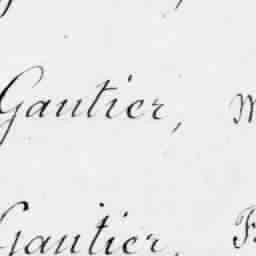 Gautier,
Gautier,